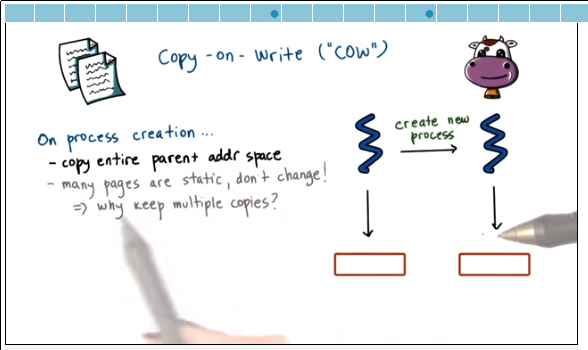 Copy-on-Write ("COW")
On process creation...
- copy entire parent addr space
- many pages are static, don't change!
=) why keep multiple copies?
create new
process